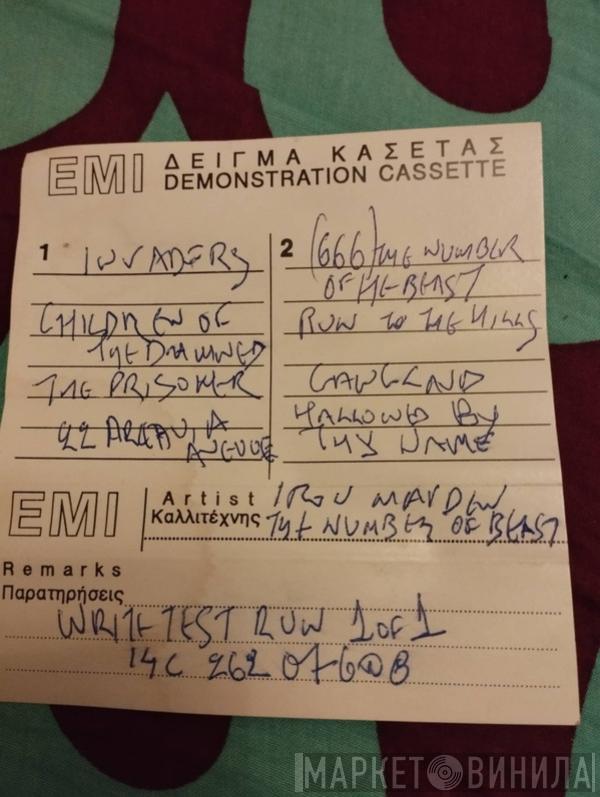 EMI ΔΕΙΓΜΑ ΚΑΣΕΤΑΣ
DEMONSTRATION CASSETTE
1 INVADERS
CHILDREN OF
THE DAMNED
THE PRISONER
22 ACACIA
AVENUE
2 (666) THE NUMBER
OF HE BEAST
RUN TO THE HILLS
GANGLAND
HALLOWED BY
THY NAME
EMI Artist IRON MAIDEN
Καλλιτέχνης THE NUMBER OF BEAST
Remarks
Παρατηρήσεις
WRITE TEST RUN 1 OF 1
14C 262
МАРКЕТ ВИНИЛА